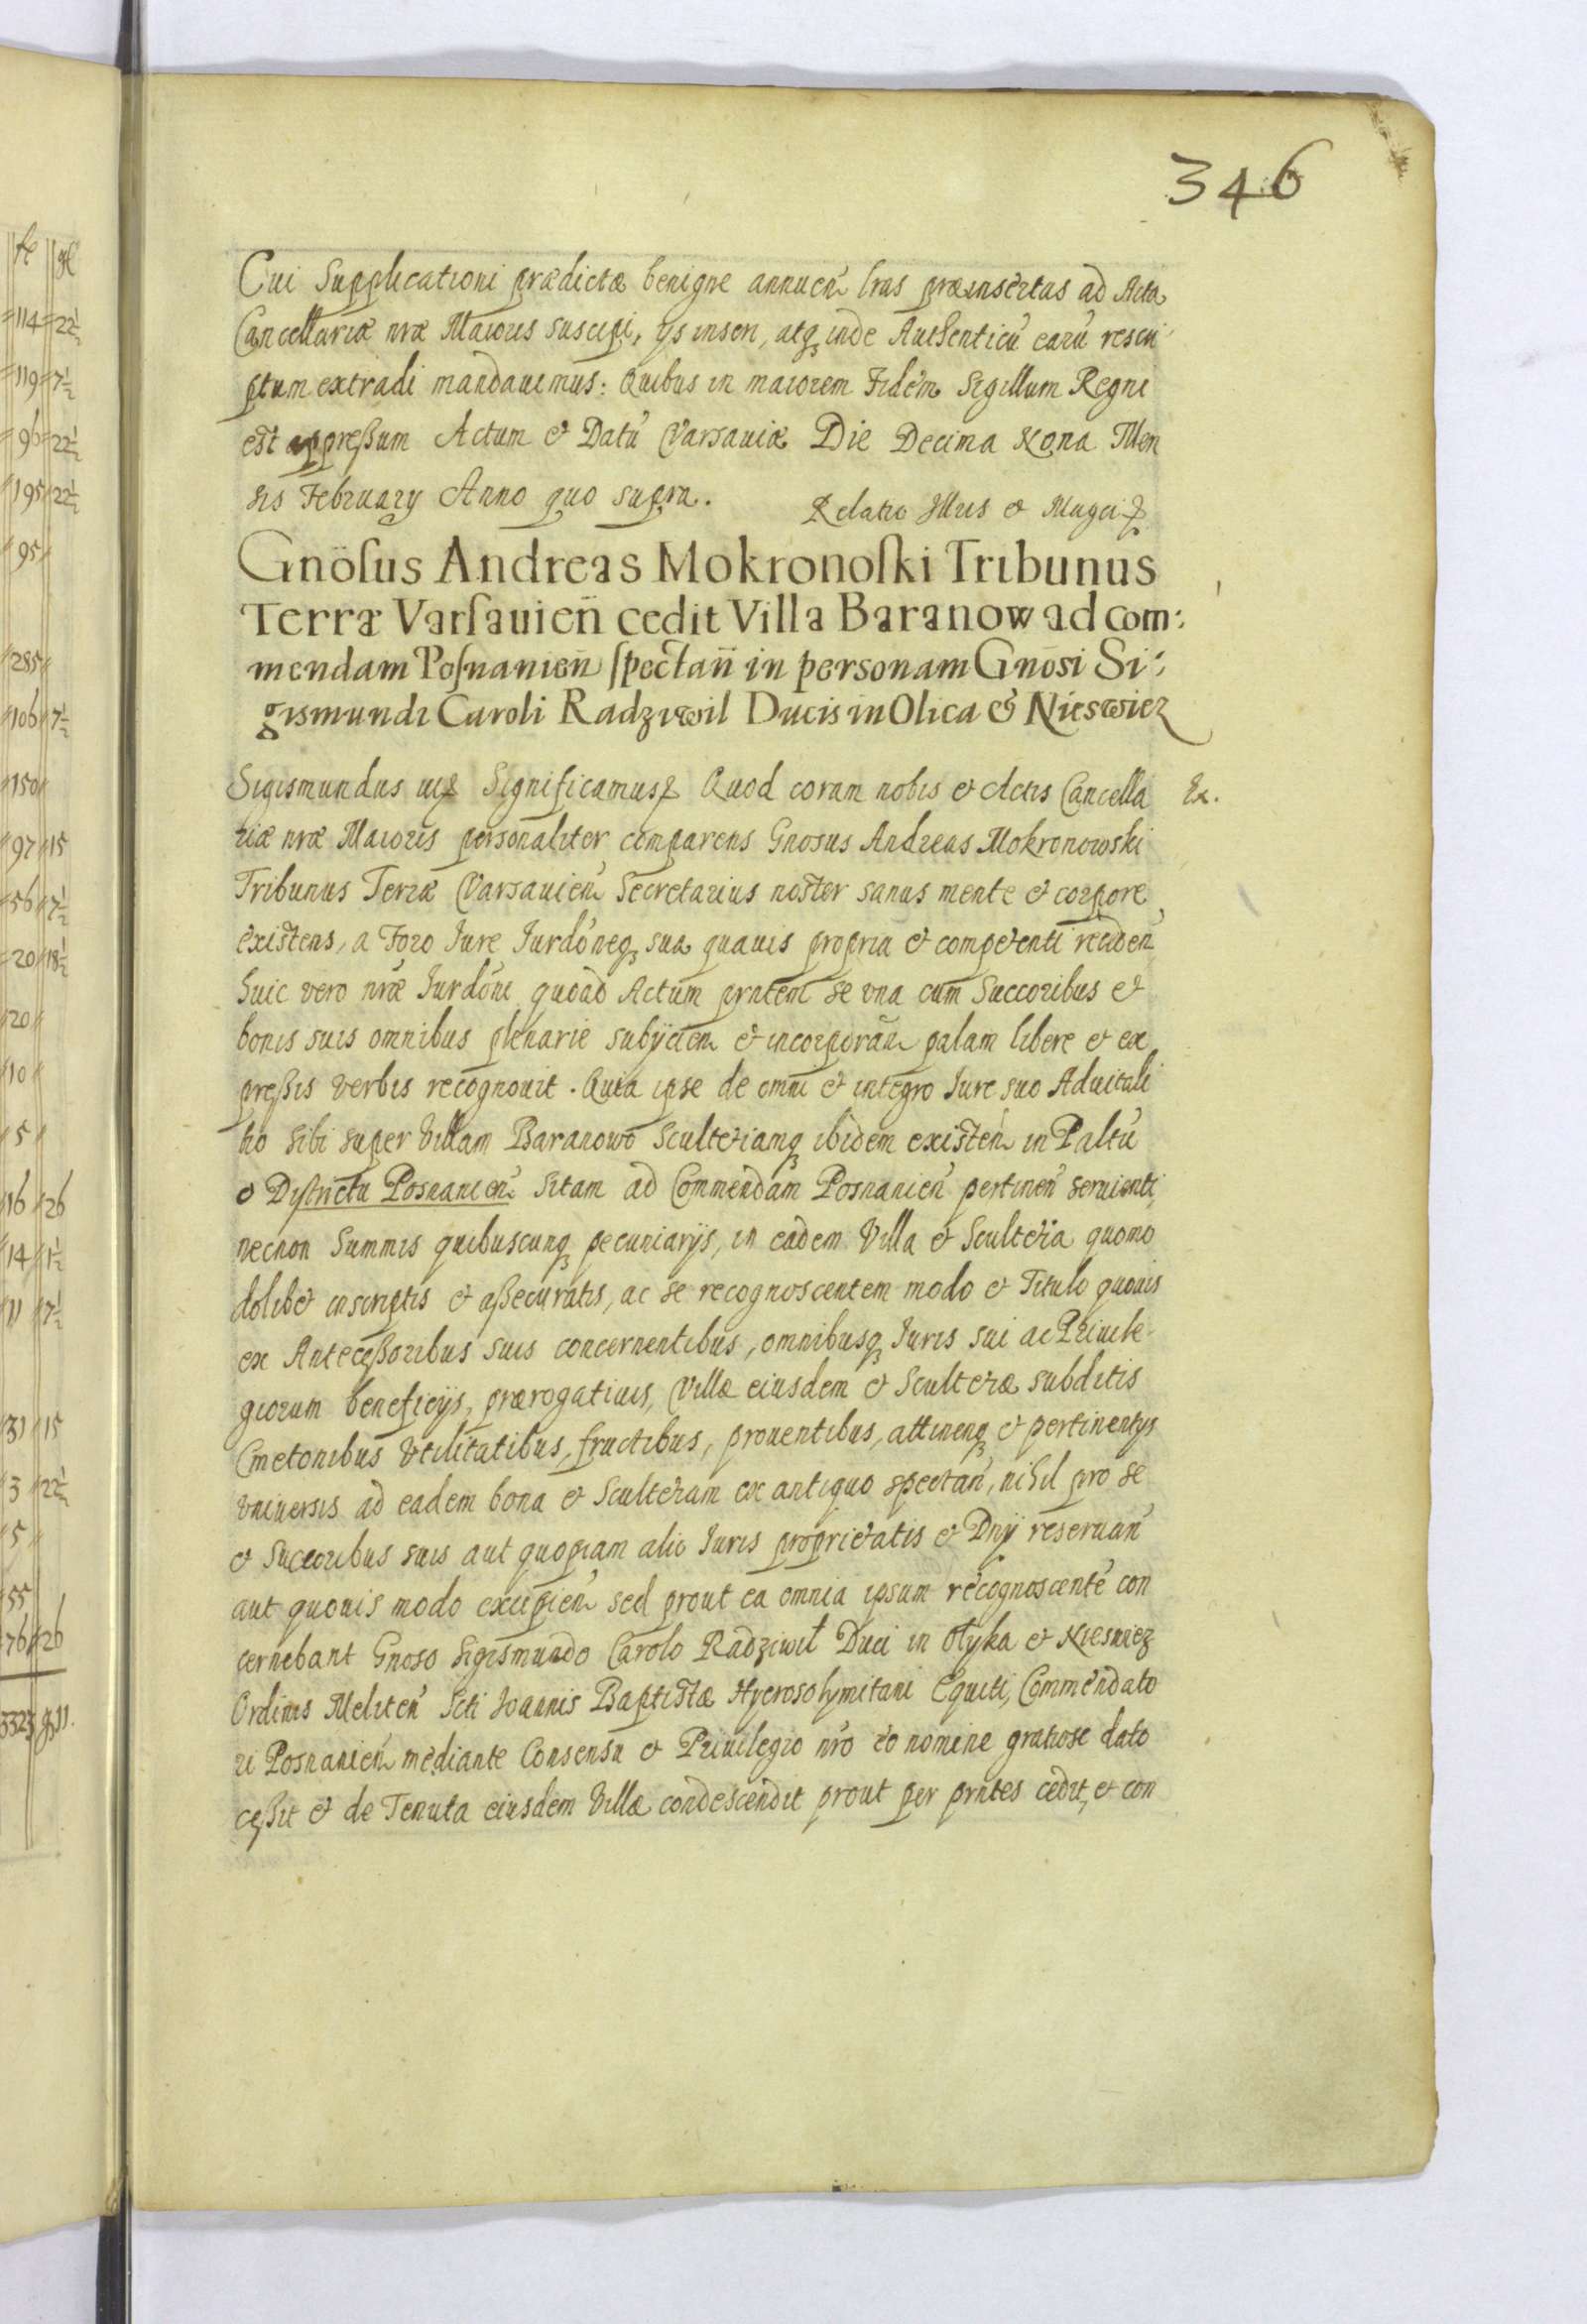 346
Cui Supplicationi prædictæ benigne annuen̄ lras præinsertas ad Acta
Cancellariæ nræ Maioris suscipi, ijs inseri, atq₃ inde Authenticū earū rescri
ptum extradi mandauimus: Quibus in maiorem Fidem Sigillum Regni
est appreßum Actum & Datū Varsauiæ Die Decima Nona Men
sis February Anno quo supra. Relatio Illris & Magci
Gnösus Andreas Mokronoski Tribunus
Terræ Varsauien̄ cedit Villa Baranow ad com:
mendam Posnanien̄ spectan̄ in personam Gnōsi Si:
gismundi Caroli Radziwil Ducis in Olica & Nieswiez
Sigismundus Significamus Quod coram nobis et Actis Cancella Ex.
riæ nræ Maioris personaliter comparens Gnosus Andreas Mokronowski
Tribunus Terræ Varsauien̄ Secretarius noster sanus mente et corpore
existens, a Foro Iure Iurdōneq₃ sua quauis propria et competenti reciden̄
huic vero nræ Iurdōni quoad Actum prntem se vna cum Succoribus et
bonis suis omnibus plenarie subijcien̄ et incorporan̄ palam libere et ex
preßis verbis recognouit. Quia ipse de omni et integro Iure suo Aduitali
tio sibi super Villam Baranowo Scultetiamq₃ ibidem existen̄ in Paltū
& Districtu Posnanien̄ sitam ad Commendam Posnanien̄ pertinen̄ seruienti,
necnon Summis quibuscunq₃ pecuniarijs, in eadem Villa et Scultetia quomo
dolibet inscriptis et aßecuratis, ac se recognoscentem modo et Titulo quouis
ex Anteceßoribus suis concernentibus, omnibusq₃ Iuris sui ac Priuile
giorum beneficijs, prærogatiuis, Villæ eiusdem et Scultetiæ subditis
Cmetonibus Vtilitatibus, fructibus, prouentibus, attinenq₃ et pertinentijs
vniuersis ad eadem bona et Scultetiam ex antiquo spectan̄, nihil pro se
et Succoribus suis aut quopiam alio Iuris proprietatis et Dnij reseruan̄
aut quouis modo excipien̄ sed prout ea omnia ipsum recognoscentē con
cernebant Gnoso Sigismundo Carolo Radziwił Duci in Olyka et Nieswiez
Ordinis Meliten̄ Scti Ioannis Baptistæ Hyerosolymitani Equiti, Commendato
ri Posnanien̄ mediante Consensu et Priuilegio nro eo nomine gratiose dato
ceßit et de Tenuta eiusdem Villæ condescendit prout per prntes cedit, et con